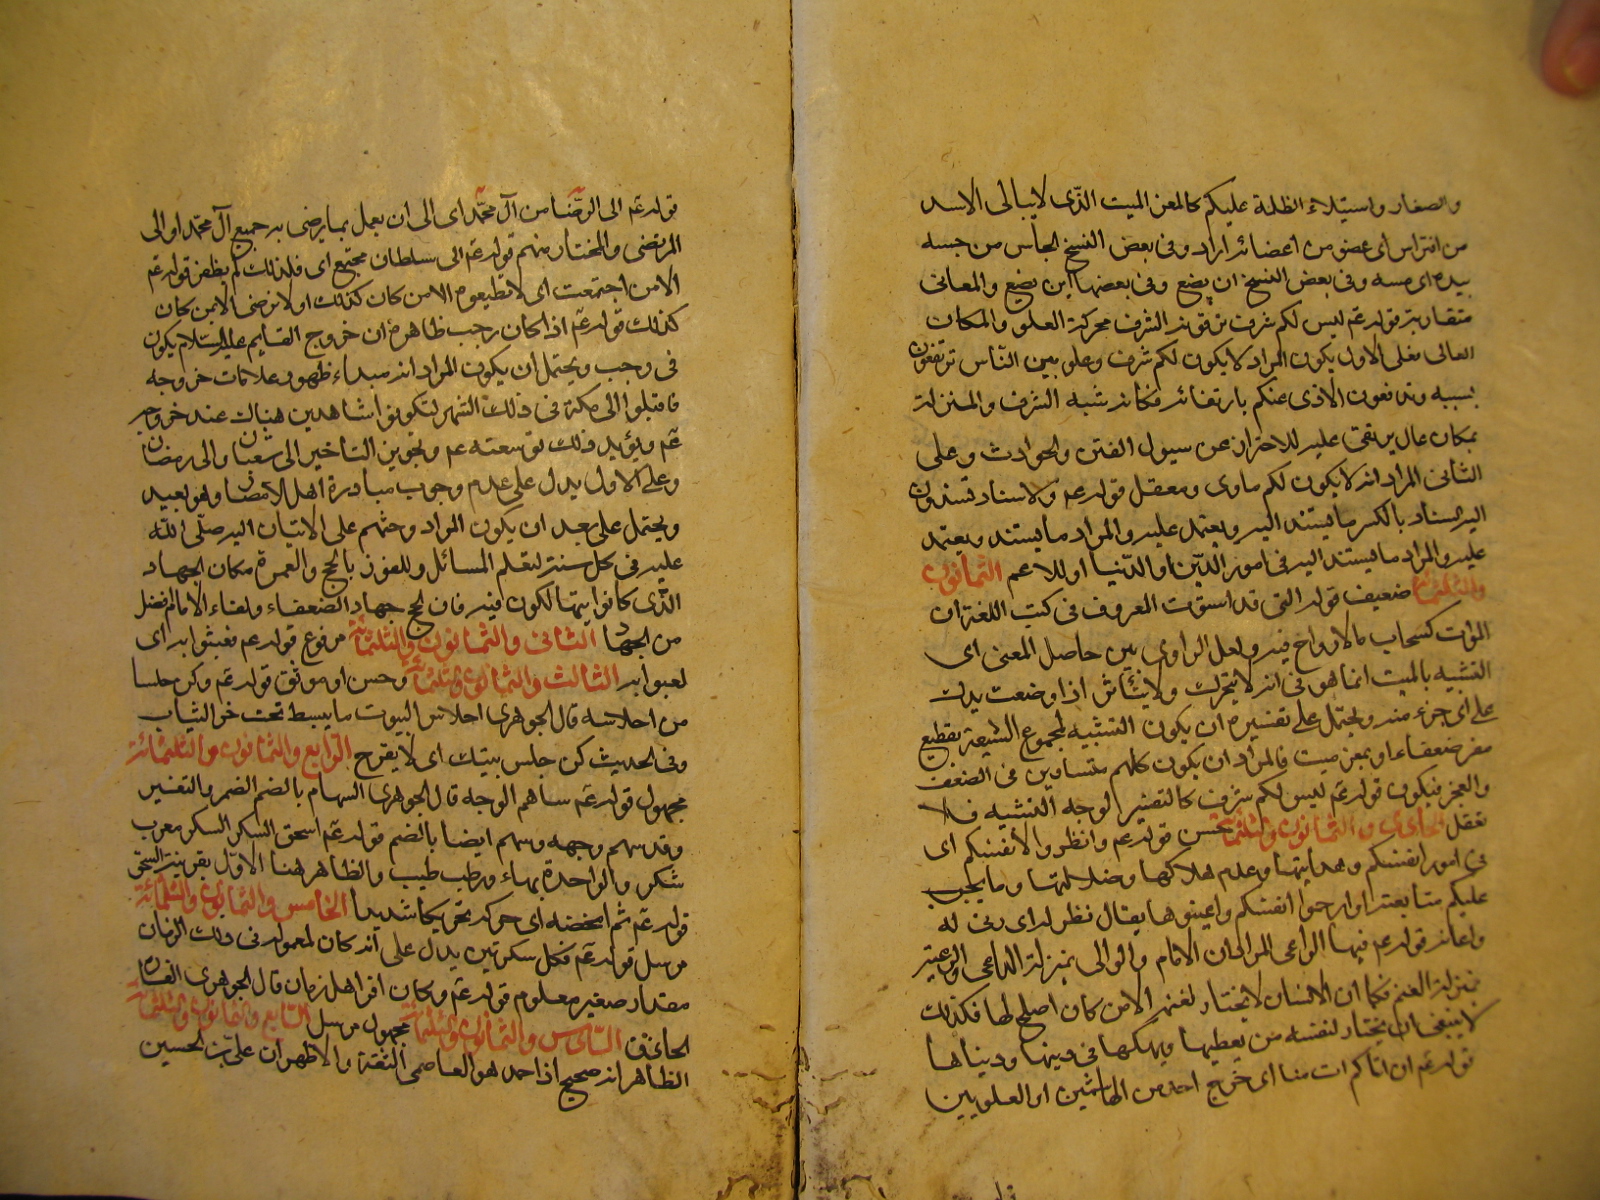 والصغار واستيلاء الظلمة عليكم كالمعز الميت الذى لايبالى الاسد
من افتراس اى عضو من اعضائه اراد وفى بعض النسخ الجاس من جسه
بيده اى مسه وفى بعض النسخ ان يضع وفى بعضها اين يضع والمعانى
متقاربة قوله عم ليس لكم شرف ترقونه الشرف محركة العلو والمكان
العالى فعلى الاول يكون المراد لايكون لكم شرف وعلو بين الناس ترتفعون
بسببه وتدفعون الاذى عنكم بارتفائه فكانه شبه الشرف والمنزلة
بمكان عال يرتقى عليه للاحتراز عن سيول الفتن والحوادث وعلى
الثانى المراد انه لايكون لكم ماوى ومعقل قوله عم ولاسناد تسندون
اليه السناد بالكسر مايستند اليه ويعتمد عليه والمراد مايستند ويعتمد
عليه والمراد مايستند اليه فى امور الدين او الدنيا او للاعم الثمانون
والثلثمائة ضعيف قوله التى قد استوت المعروف فى كتب اللغة ان
الموات كسحاب مالا رواح فيه ولعل الراوى بين حاصل المعنى اى
التشبيه بالميت انما هو فى انه لايتحرك ولايتأثر اذا وضعت يدك
على اى جزء منه ويحتمل على تفسيره ان يكون التشبيه لمجموع الشيعة بقطيع
معز ضعفاء او بمعز ميت فالمراد ان يكون كلهم متساوين فى الضعف
والعجز فيكون قوله عم ليس لكم شرف كالتفسير لوجه التشبيه فلا
تغفل الحادى والثمانون والثلثمائة حسن قوله عم وانظروا لأنفسكم اى
فى امور انفسكم وهدايتها وعدم هلاكها وضلالتها وما يجب
عليكم متابعته او ارحموا انفسكم واعينوها يقال نظر له اى رثى له
واعانه قوله عم فيها الراعى المراد ان الامام والوالى بمنزلة الراعى والرعية
بمنزلة الغنم فكما ان الانسان لايختار لغنمه الا من كان اصلح لها فكذلك
لاينبغى ان يختار لنفسه من يعطبها ويهلكها فى دينها ودنياها
قوله عم ان اتاكم ات منا اى خرج احد من الهاشميين او العلويين
قوله عم الى الرضا من آل محمد اى الى ان يعمل بما يرضى به جميع آل محمد او الى
المرتضى والمختار منهم قوله عم الى سلطان مجتمع اى فلذلك لم يظفر قوله عم
الا من اجتمعت اى لاتطيعوه الا من كان كذلك او لانرضى الا بمن كان
كذلك قوله عم اذا كان رجب ظاهره ان خروج القايم عليه السلام يكون
فى رجب ويحتمل ان يكون المراد انه مبداء ظهور علامات خروجه
فاقبلوا الى مكة فى ذلك الشهر لتكونوا شاهدين هناك عند خروجه
عم ويؤيد ذلك توسعته عم وتجويز التاخير الى شعبان والى رمضان
وعلى الاول يدل على عدم وجوب مبادرة اهل الامصار وهو بعيد
ويحتمل على بعد ان يكون المراد وحثهم على الاتيان اليه صلى الله
عليه فى كل سنة لتعلم المسائل وللفوز بالحج والعمرة مكان الجهاد
الذى كانوا يتهالكون فيه فان الحج جهاد الضعفاء ولقاء الامام افضل
من الجهاد الثانى والثمانون والثلثمائة مرفوع قوله عم فعبثوا به اى
لعبوا به الثالث والثمانون والثلثمائة حسن او موثق قوله عم وكن حلسا
من احلاسه قال الجوهرى احلاس البيوت مايبسط تحت حر الثياب
وفى الحديث كن حلس بيتك اى لايقرح الرابع والثمانون والثلثمائة
مجهول قوله عم ساهم الوجه قال الجوهرى السهام بالضم الضمر والتغير
وقد سهم وجهه وسهم ايضا بالضم قوله عم اسحق السكر السكر معرب
شكر والواحدة بهاء ورطب طيب والظاهر هنا الاول بقرينة السحق
قوله عم ثم امخضه اى حركه تحريكا شديدا الخامس والثمانون والثلثمائة
مرسل قوله عم فكل سكرتين يدل على انه كان لمعمول فى ذلك الزمان
مقدار صغير معلوم قوله عم وكان افره اهل زمان قال الجوهرى الفاره
الحاذق السادس والثمانون والثلثمائة مجهول مرسل السابع والثمانون والثلثمائة
الظاهر انه صحيح اذ احمد هو العاصمى الثقة والاظهر ان على بن الحسين